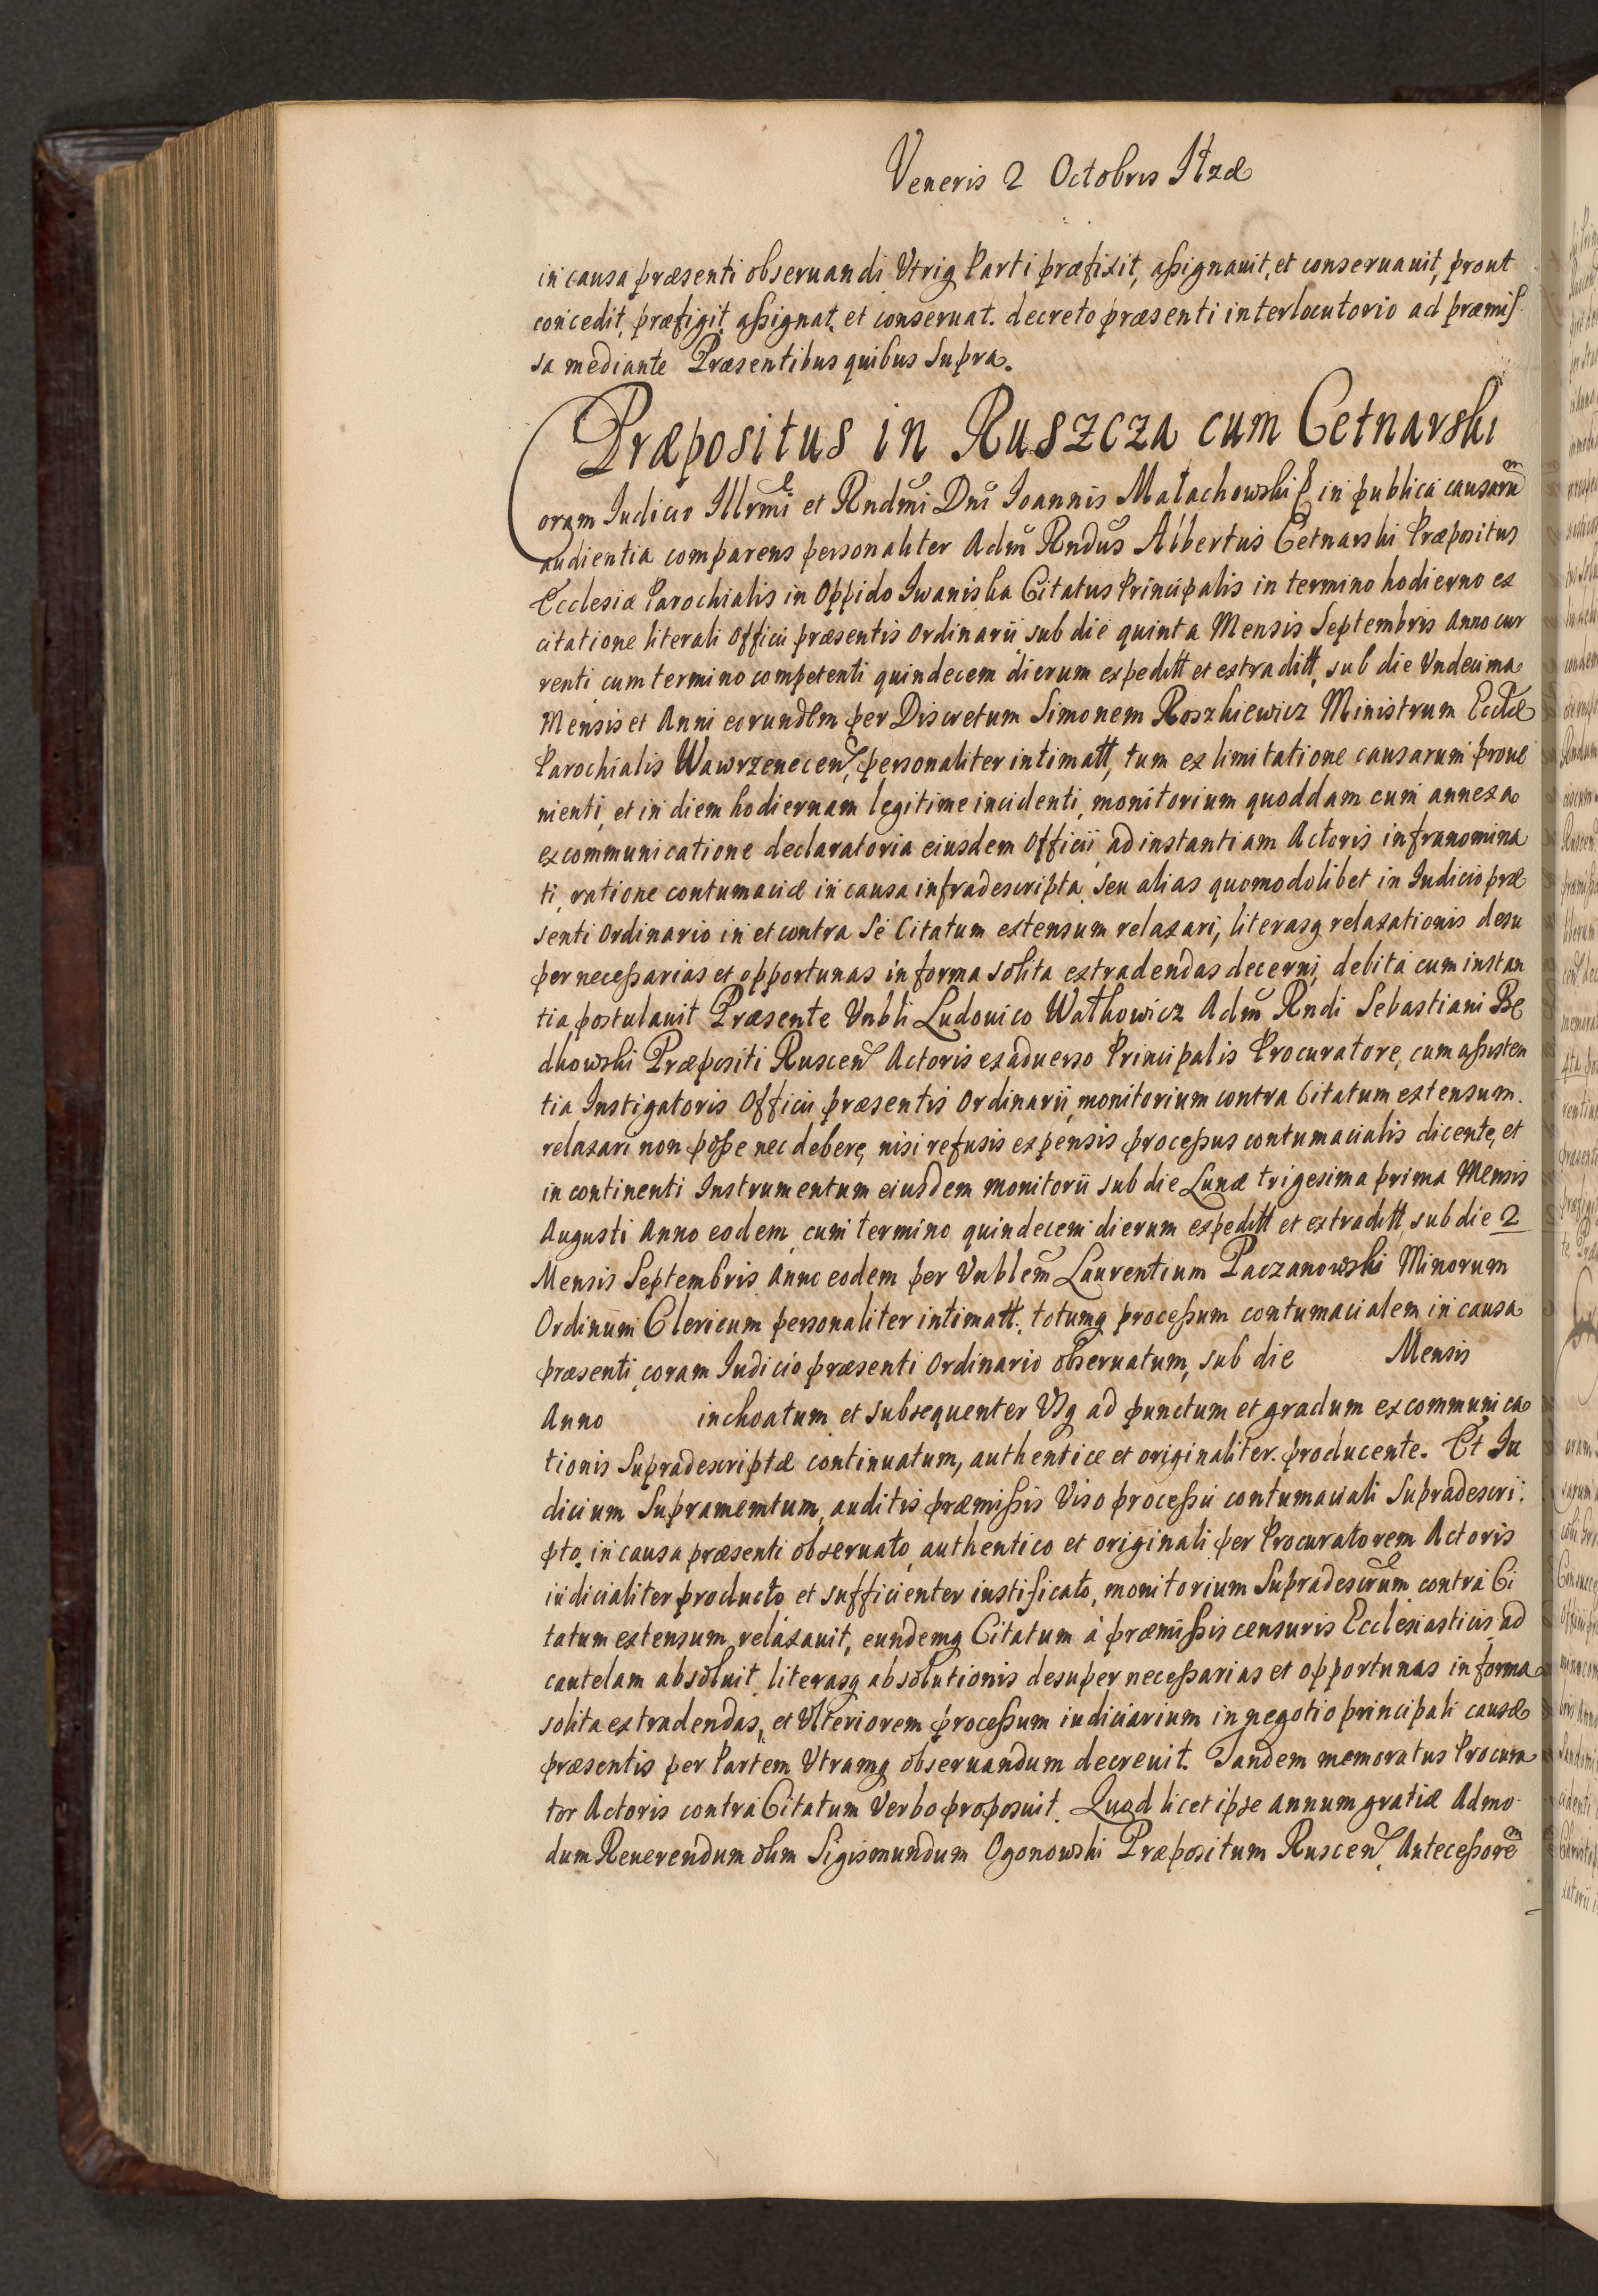 Veneris 2 Octobris
in causa præsenti observandi Vtriq Parti præfixit, aßignauit, et conseruauit, prout
concedit, præfigit, aßignat, et conseruat. decreto præsenti interlocutorio ad præmis
sa mediante Præsentibus quibus Supra.
Præpositus in Ruszcza cum Cetnarski
Coram Iudicio Illrmi et Rndmi Dni Ioannis Małachowski in publica causaru
audientia comparens personaliter Adm Rndus Albertus Cetnarski Præpositus
Ecclesiæ Parochialis in Oppido Iwaniska Citatus Principalis in termino hodierno ex
citatione literali Officii præsentis Ordinarii sub die quinta Mensis Septembris Anno cur
renti cum termino competenti quindecem dierum expeditt et extraditt, sub die Vndecima
Mensis et Anni eorundem per Discretum Simonem Roszkiewicz Ministrum Ecclæ
Parochialis Wawrzenecen, personaliter intimatt, tum ex limitatione causarum proue
nienti, et in diem hodiernam legitime incidenti, monitorium quoddam cum annexa
excommunicatione declaratoria eiusdem Officii, ad instantiam Actoris infranomina
ti, ratione contumaciæ in causa infradescripta, seu alias quomodolibet in Iudicio præ
senti Ordinario in et contra Se Citatum extensum relaxari, literasq relaxationis desu
per neceßarias et opportunas in forma solita extradendas decerni, debita cum instan
tia postulauit Præsente Vnbli Ludouico Wathowicz Adm Rndi Sebastiani Be
dkowski Præpositi Ruscen Actoris ex aduerso Principalis Procuratore, cum aßisten
tia Instigatoris Officii præsentis Ordinarii, monitorium contra Citatum extensum.
relaxari non poße nec debere, nisi refusis expensis proceßus contumacialis dicente, et
in continenti Instrumentum eiusdem monitorii sub die Lunæ trigesima prima Mensis
Augusti Anno eodem, cum termino quindecem dierum expeditt et extraditt, sub die 2
Mensis Septembris Anno eodem per Vnblem Laurentium Paczanowski Minorum
Ordinum Clericum personaliter intimatt. totumq proceßum contumacialem in causa
præsenti, coram Iudicio præsenti Ordinario obseruatum, sub die Mensis
Anno inchoatum et subsequenter Vsq ad punctum et gradum excommunica
tionis Supradescriptæ continuatum, authentice et originaliter producente. Et Iu
dicium Supramemtum, auditis præmißis Viso proceßu contumaciali Supradescri
pto, in causa præsenti obseruato, authentico et originali per Procuratorem Actoris
iudicialiter producto et sufficienter iustificato, monitorium Supradescrum contra Ci
tatum extensum relaxauit, eundemq Citatum á præmißis censuris Ecclesiasticis ad
cautelam absoluit, literasq absolutionis desuper neceßarias et opportunas in forma
solita extradendas, et Vlteriorem proceßum iudiciarium in negotio principali causæ
præsentis per Partem Vtramq obseruandum decreuit. Tandem memoratus Procura
tor Actoris contra Citatum Verbo proposuit. Quod licet ipse annum gratiæ Admo
dum Reuerendum olim Sigismundum Ogonowski Præpositum Ruscen, Anteceßore